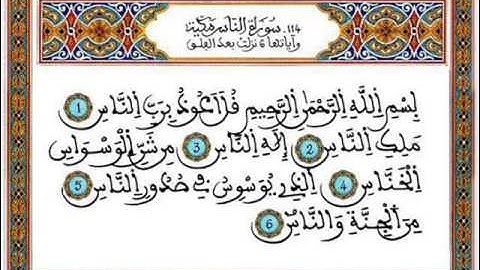 114. سورة الناس مكية
وآياتها 6 نزلت بعد الفلق
بِسْمِ اللَّهِ الرَّحْمَٰنِ الرَّحِيمِ قُلَ اَعُوذُ بِرَبِّ النَّاسِ 1
مَلِكِ النَّاسِ 2 إِلَٰهِ النَّاسِ 3 مِن شَرِّ الْوَسْوَاسِ
الْخَنَّاسِ 4 الَّذِي يُوَسْوِسُ فِي صُدُورِ النَّاسِ 5
مِنَ الْجِنَّةِ وَالنَّاسِ 6